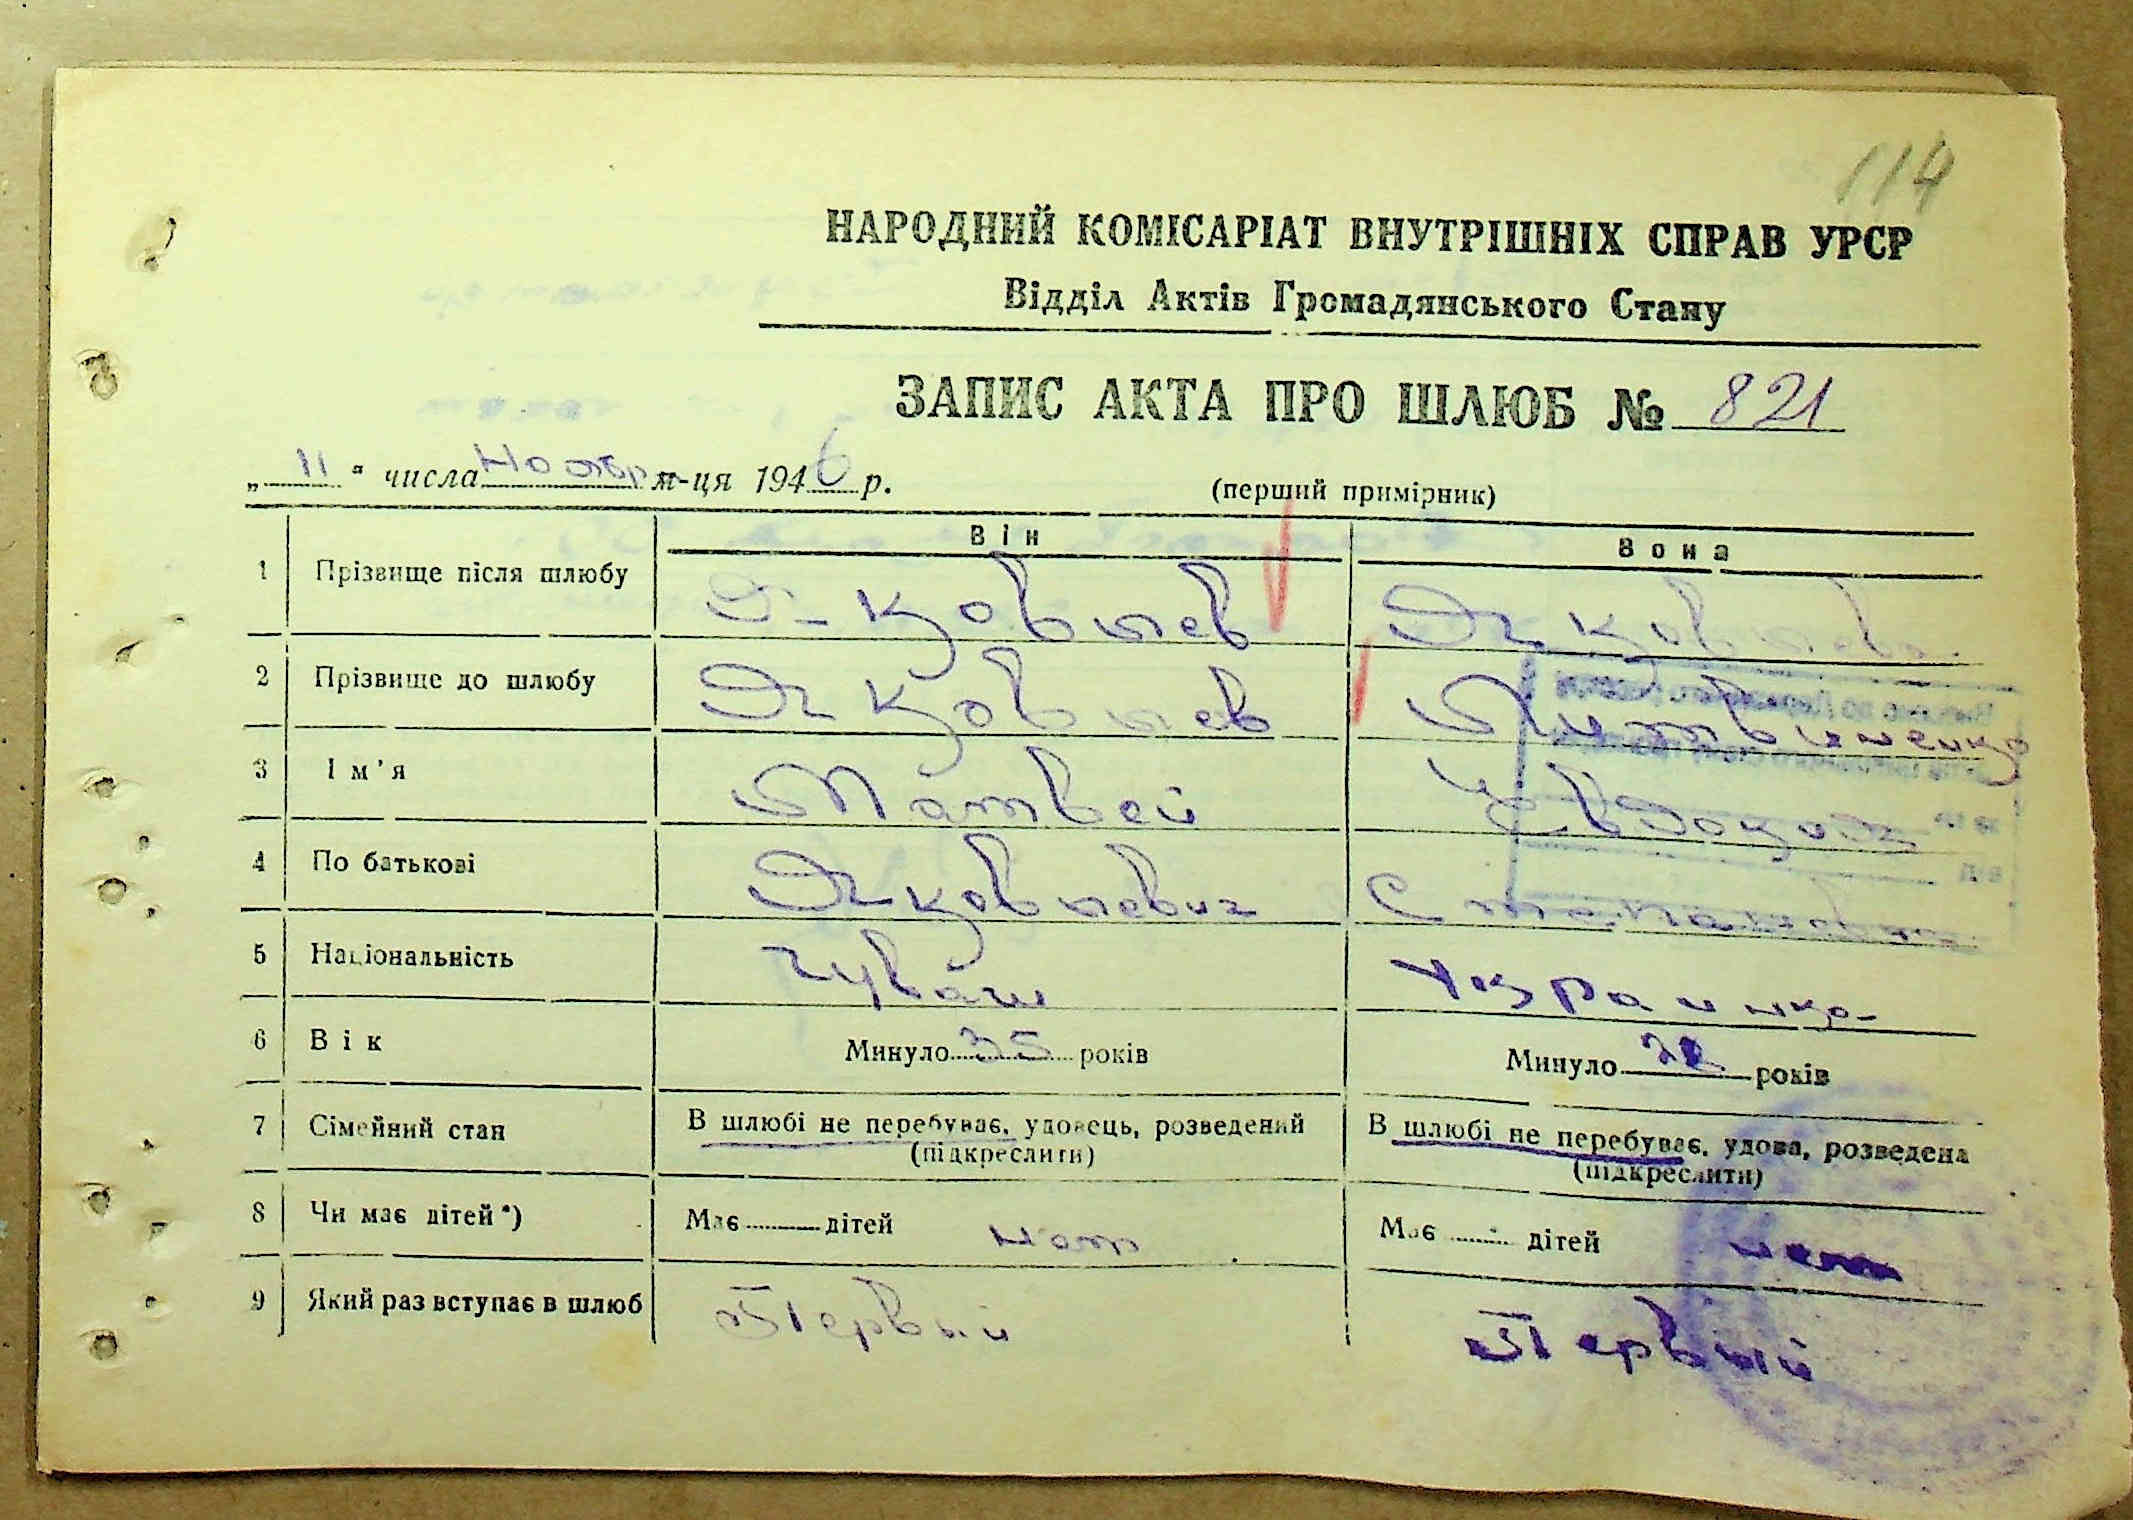 114
НАРОДНИЙ КОМІСАРІАТ ВНУТРІШНІХ СПРАВ УРСР
Відділ Актів Громадянського Стану
ЗАПИС АКТА ПРО ШЛЮБ № 821
„ 11 " числа Ноябр м-ця 1946 р.
(перший примірник)
Він Вона
1 Прізвище після шлюбу Яковлев Яковлева
2 Прізвище до шлюбу Яковлев Литвиненко
3 Ім'я Матвей Евдокия
4 По батькові Яковлевич Степановна
5 Національність Чуваш Украинка
6 Вік Минуло 35 років Минуло років
7 Сімейний стан В шлюбі не перебуває, удовець, розведений В шлюбі не перебуває, удова, розведена
(підкреслити) (підкреслити)
8 Чи має дітей*) Має дітей нет Має дітей нет
9 Який раз вступає в шлюб Первый Первый